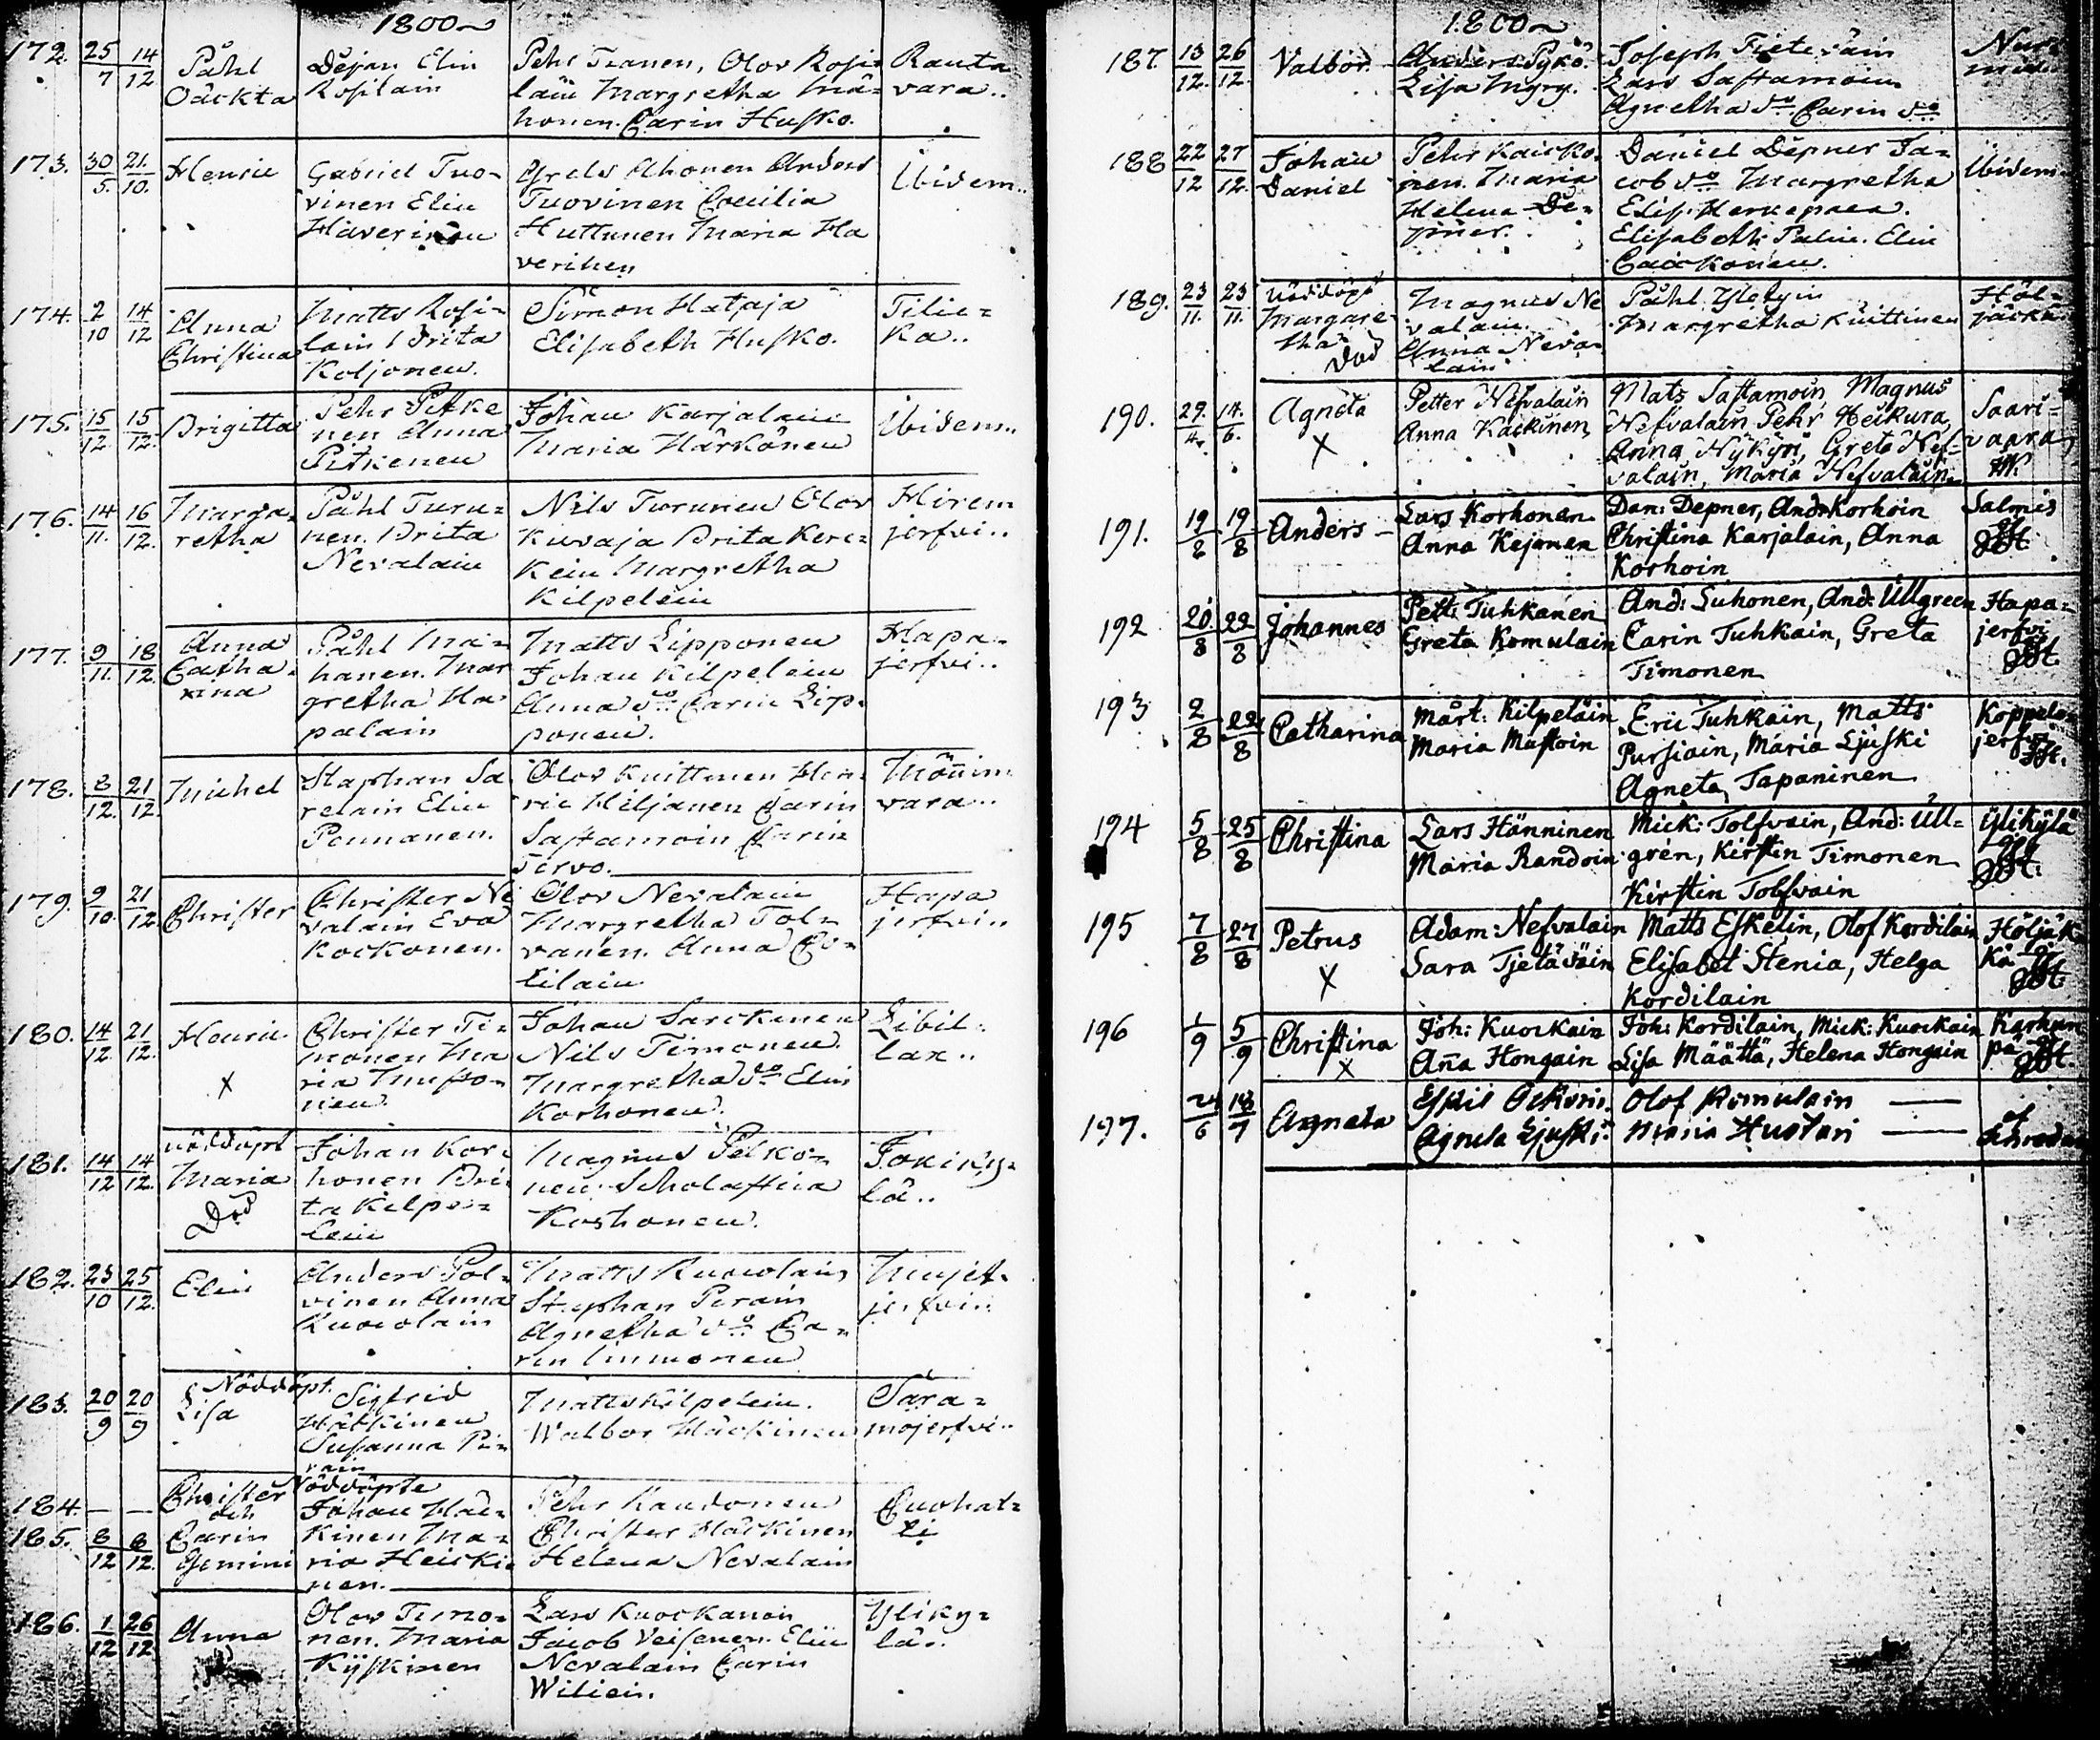 1800
172. 25/7 14/12 Påhl Oäckta Dejan Elin Rosilain Pehr Tranen, Olov Rosi=
lain Margretha Mä=
honen. Carin Husko. Rauta
vara..
173. 30/5. 21./10. Henric Gabriel Tuo=
vinen Elin
Haverinen Grels Ahonen Anders
Tuovinen Coecilia
Huttunen Maria Ha
verinen Ibidem..
174. 2/10 14/12 Anna
Christina Matts Rosi=
lain Brita
Koljonen. Simon Hataja
Elisabeth Husko. Tilic=
ka..
175. 15/12. 15/12. Brigitta Pehr Pitke
nen Anna
Pitkenen Johan Karjalain
Maria Härkönen Ibidem..
176. 14/11. 16/12. Marga=
retha Påhl Turu=
nen. Brita
Nevalain Nils Turunen Olov
Kuvaja Brita Kere=
kein Margretha
Kilpelein Hirven
jerfvi..
177. 9/11. 18/12. Anna
Catha=
rina Påhl Mä=
hanen. Mar
gretha Ha=
palain Matts Lipponen
Johan Kilpelein
Anna do Carin Lip=
ponen. Hapa=
jerfvi..
178. 8/12. 21/12. Michel Staphan Sa
relain Elin
Ponnanen. Olov Kuittinen Hen=
ric Hiljanen Carin
Sastamoin Carin
Tervo. Mönnim
vara..
179. 9/10. 21/12. Christer Christer Ne
valain Eva
Kockonen. Olov Nevalain
Margretha Tol=
vanen. Anna Co=
lilain Hapa
jerfvi..
180. 14/12. 21/12. Henric
X Christer Ti=
monen Ma
ria Musto=
nen. Johan Sarckinen
Nils Timonen.
Margretha do Elin
Korhonen. Libil=
lax..
181. 14/12 14/12. nöddöpt
Maria
Död Johan Kor=
honen Bri=
ta Kilpe=
lein Magnus Pelko=
nen Scholastica
Korhonen. Jokiky=
lä..
182. 23/10 25/12. Elin Anders Pol=
vinen Anna
Kuocolain Matts Kuocolain
Stephan Perain
Agnetha do Ca=
rin Immonen Mujet=
jerfvi..
183. 20/9 20/9 Nöddöpt.
Lisa Sigfrid
Häckinen
Susanna Pi=
rain Matts Kilpelein.
Walbor Häckinen Sara=
mojerfvi..
184. — —
185. 8/12 8/12. Christer
och
Carin
Gemini Nöddöpte
Johan Häc=
kinen Ma=
ria Heicki=
nen. Pehr Kaudonen
Christer Häckinen
Helena Nevalain Cuohat=
ti
186. 1/12 26/12 Anna Olov Timo=
nen. Maria
Kyskinen Lars Kuockanen
Jacob Veisenen. Elin
Nevalain Carin
Wiliein. Yliky=
lä..
1800
187. 13/12. 26/12. Valbor Anders Pykö.
Lisa Ingry. Joseph Tietevain
Lars Sastamoin
Agnetha do Carin do Nur
188 22/12 27/12. Johan
Daniel Pehr Kaicko=
nen. Maria
Helena De=
pner. Daniel Depner Ja=
cob do Margretha
Elis. Herkepaea.
Elisabeth Palin. Elin
Caickonen. Ibidem.
189. 23/11. 23/11. Nöddöpt
Margare=
tha
Död Magnus Ne
valain
Anna Neva=
lain Påhl Yletyin
Margretha Kuittinen Höl=
jäckä
190. 29./4. 14./6. Agneta
X Petter Nefvalain
Anna Käckinen Mats Sastamoin, Magnus
Nefvalain, Pehr Heikura,
Anna Nykyri, Greta Nef=
valain, Maria Nefvalain. Saari=
vaara
191. 19/8 19/8 Anders – Lars Korhonen
Anna Kejonen Dan: Depner, And: Korhoin
Christina Karjalain, Anna
Korhoin Salmis
192 20/8 22/8 Johannes Pett: Tuhkanen
Greta Komulain And: Luhonen, And: Ullgreen
Carin Tuhkain, Greta
Timonen Hapa=
jerfvi
193 2/8 22/8 Catharina Mårt: Kilpeläin
Maria Mustoin Eric Tuhkain, Matts
Pursiain, Maria Ljuski
Agneta Tapaninen Koppelo=
jerfvi
194 5/8 25/8 Christina Lars Hänninen
Maria Randoin Mick: Tolfvain, And: Ull=
grén, Kirstin Timonen
Kirstin Tolfvain Ylikylä
195 7/8 27/8 Petrus
X Adam: Nefvalain
Sara Tjetäväin Matts Eskelin, Olof Kordilain
Elisabet Stenia, Helga
Kordilain Höljäk
kä
196 1/9 5/9 Christina
X Joh: Kuockain
Aña Hongain Joh: Kordilain, Mick: Kuockain
Lisa Määttä, Helena Hongain Karhun
pä
197. 24/6 18/7 Agneta Eskil Ockoin.
Agneta Ljuski. Olof Komulain —
Maria Hustari —